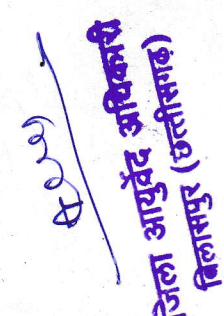 जिला आयुर्वेद अधिकारी
बिलासपुर (छत्तीसगढ़)